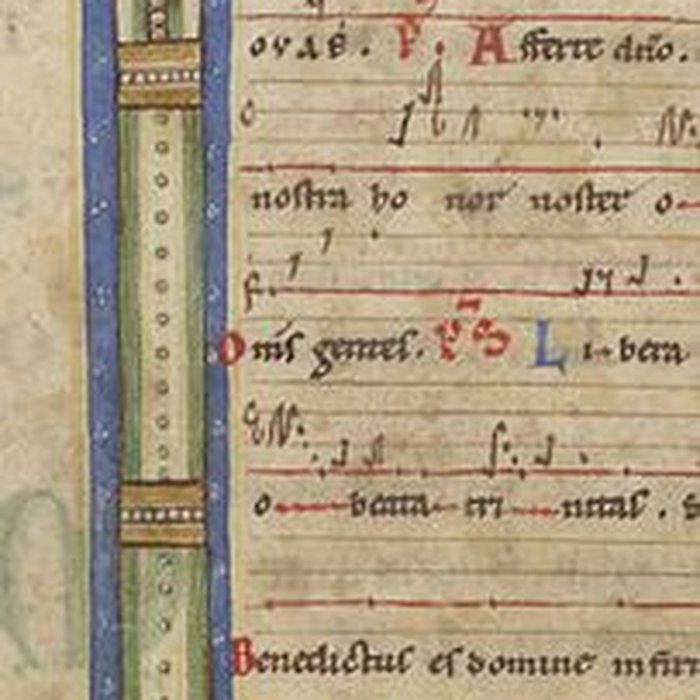 ovaē. V̄. Afferte dño.
nostra ho nor noster o
Om̄s gentes. P̄S Libera
o beata tri nitas.
Benedictus es domine in fir